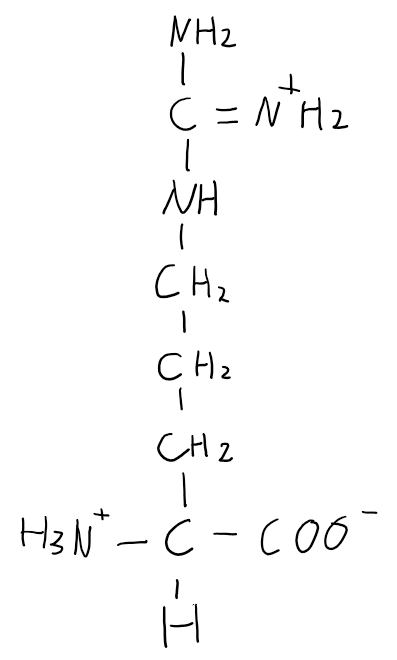 NH2
C = N+H2
NH
CH2
CH2
CH2
H3N+ – C – COO-
H